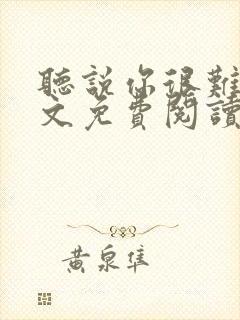 聽說你很難
文免費閱讀
黃泉隼